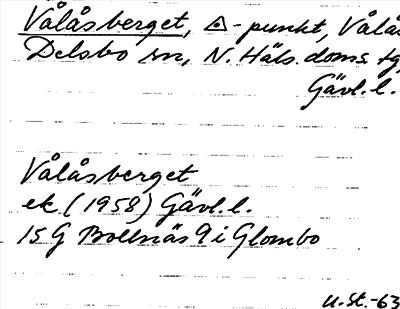 Vålåsberget, △-punkt, Vålås
Delsbo sn, N. Häls. doms. tg,
Gävl.l.
Vålåsberget
ek (1958) Gävl.l.
15G Bollnäs 9 i Glombo
U.St.-63